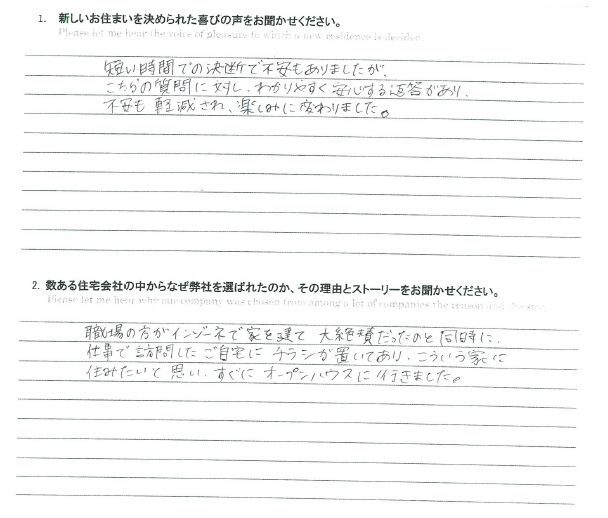 1. 新しいお住まいを決められた喜びの声をお聞かせください。
Please let me hear the voice of pleasure to which a new residence is decided.
短い時間での決断で不安もありましたが、
こちらの質問に対し、わかりやすく安心する返答があり、
不安も軽減され、楽しみに変わりました。
2. 数ある住宅会社の中からなぜ弊社を選ばれたのか、その理由とストーリーをお聞かせください。
Please let me hear why our company was chosen from among a lot of companies the reason and the story.
職場の方がインゾーネで家を建て 大絶賛だったのと同時に、
仕事で訪問したご自宅にチラシが置いてあり、こういう家に
住みたいと思い、すぐにオープンハウスに行きました。